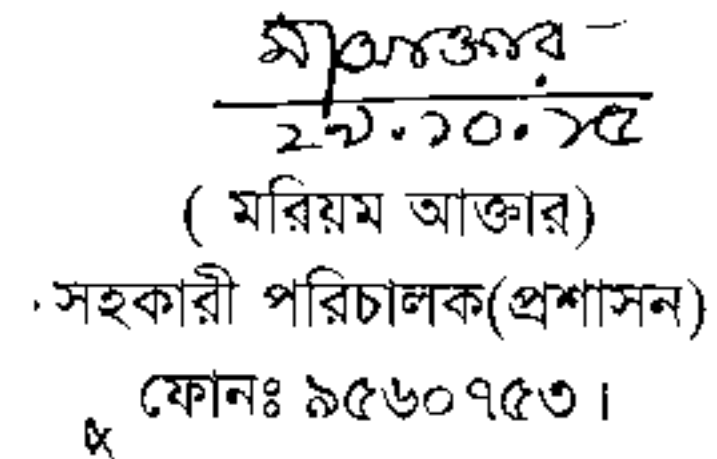 ২৯.১০.১৫
( মরিয়ম আক্তার)
সহকারী পরিচালক(প্রশাসন)
ফোনঃ ৯৫৬০৭৫৩।